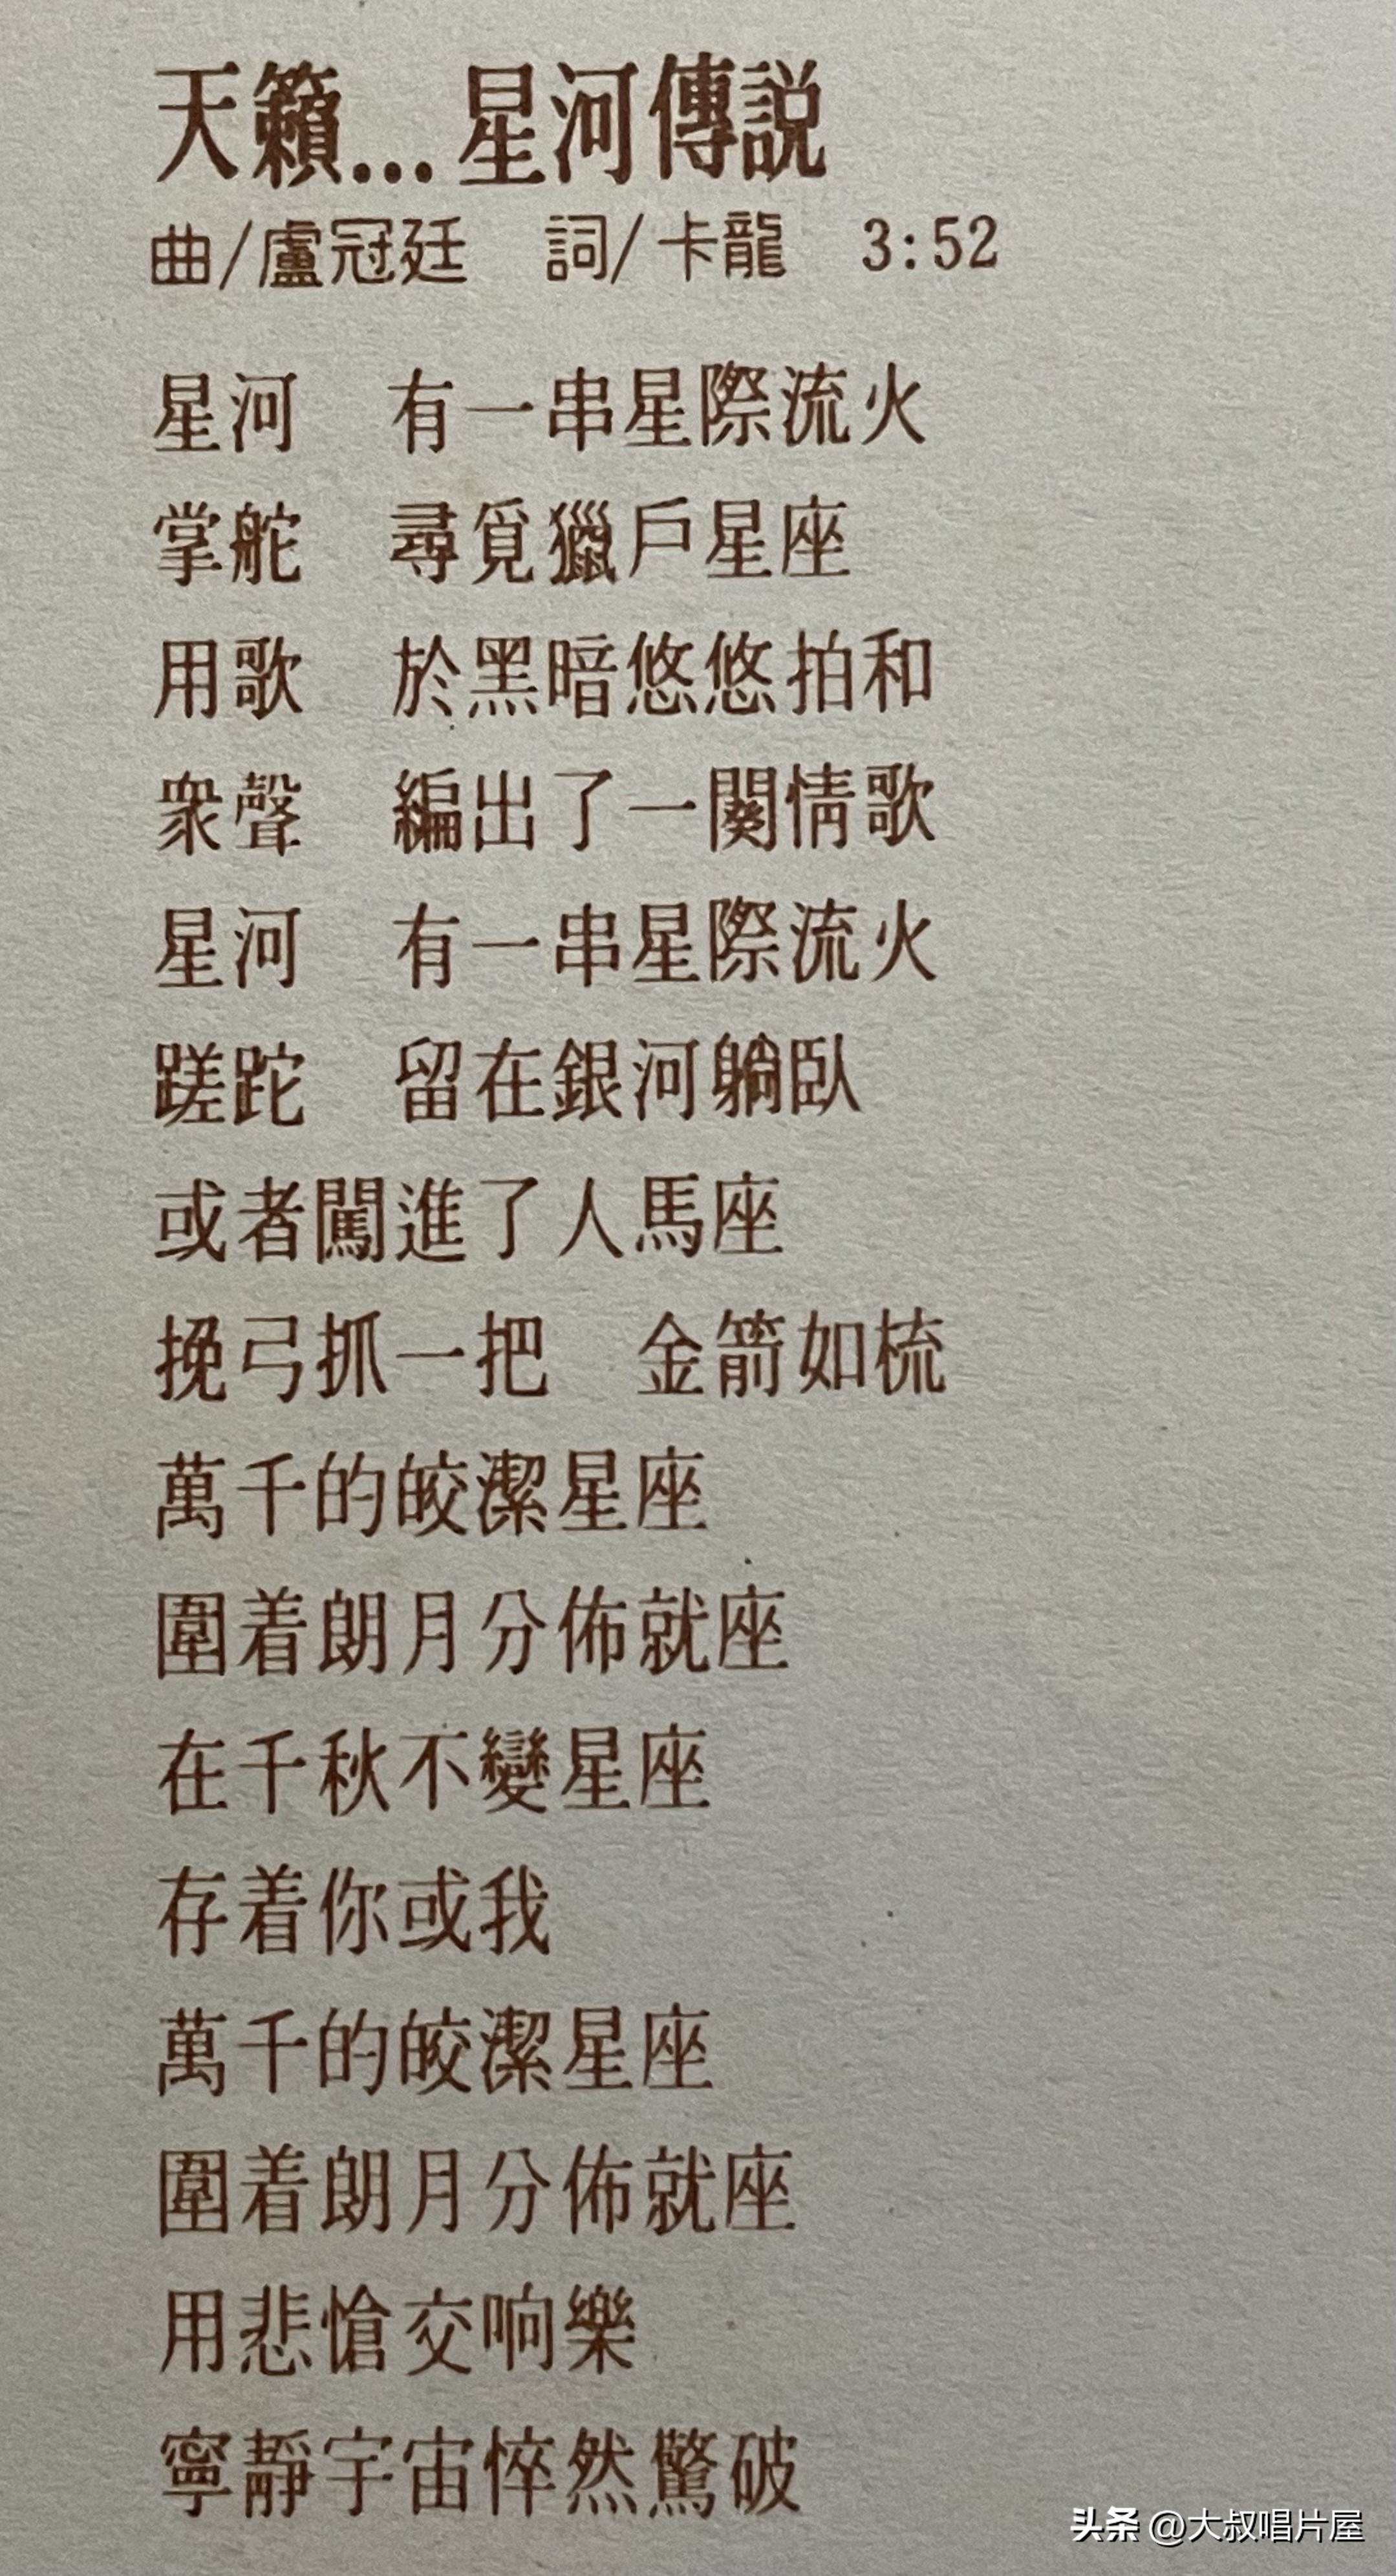 天籟…星河傳説
曲/盧冠廷　詞/卡龍　3:52
星河　有一串星際流火
掌舵　尋覓獵戶星座
用歌　於黑暗悠悠拍和
衆聲　編出了一闋情歌
星河　有一串星際流火
蹉跎　留在銀河躺臥
或者闖進了人馬座
挽弓抓一把　金箭如梳
萬千的皎潔星座
圍着朗月分佈就座
在千秋不變星座
存着你或我
萬千的皎潔星座
圍着朗月分佈就座
用悲愴交响樂
寧靜宇宙悴然驚破
头条 @大叔唱片屋